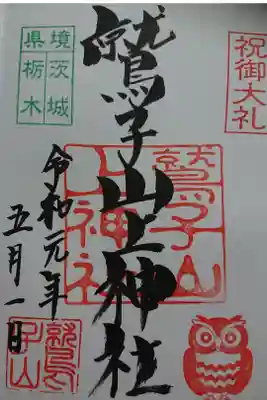 祝御大礼
鷲子山上神社
鷲子山
上神社
境茨城
県栃木
令和元年
五月一日
鷲
子山